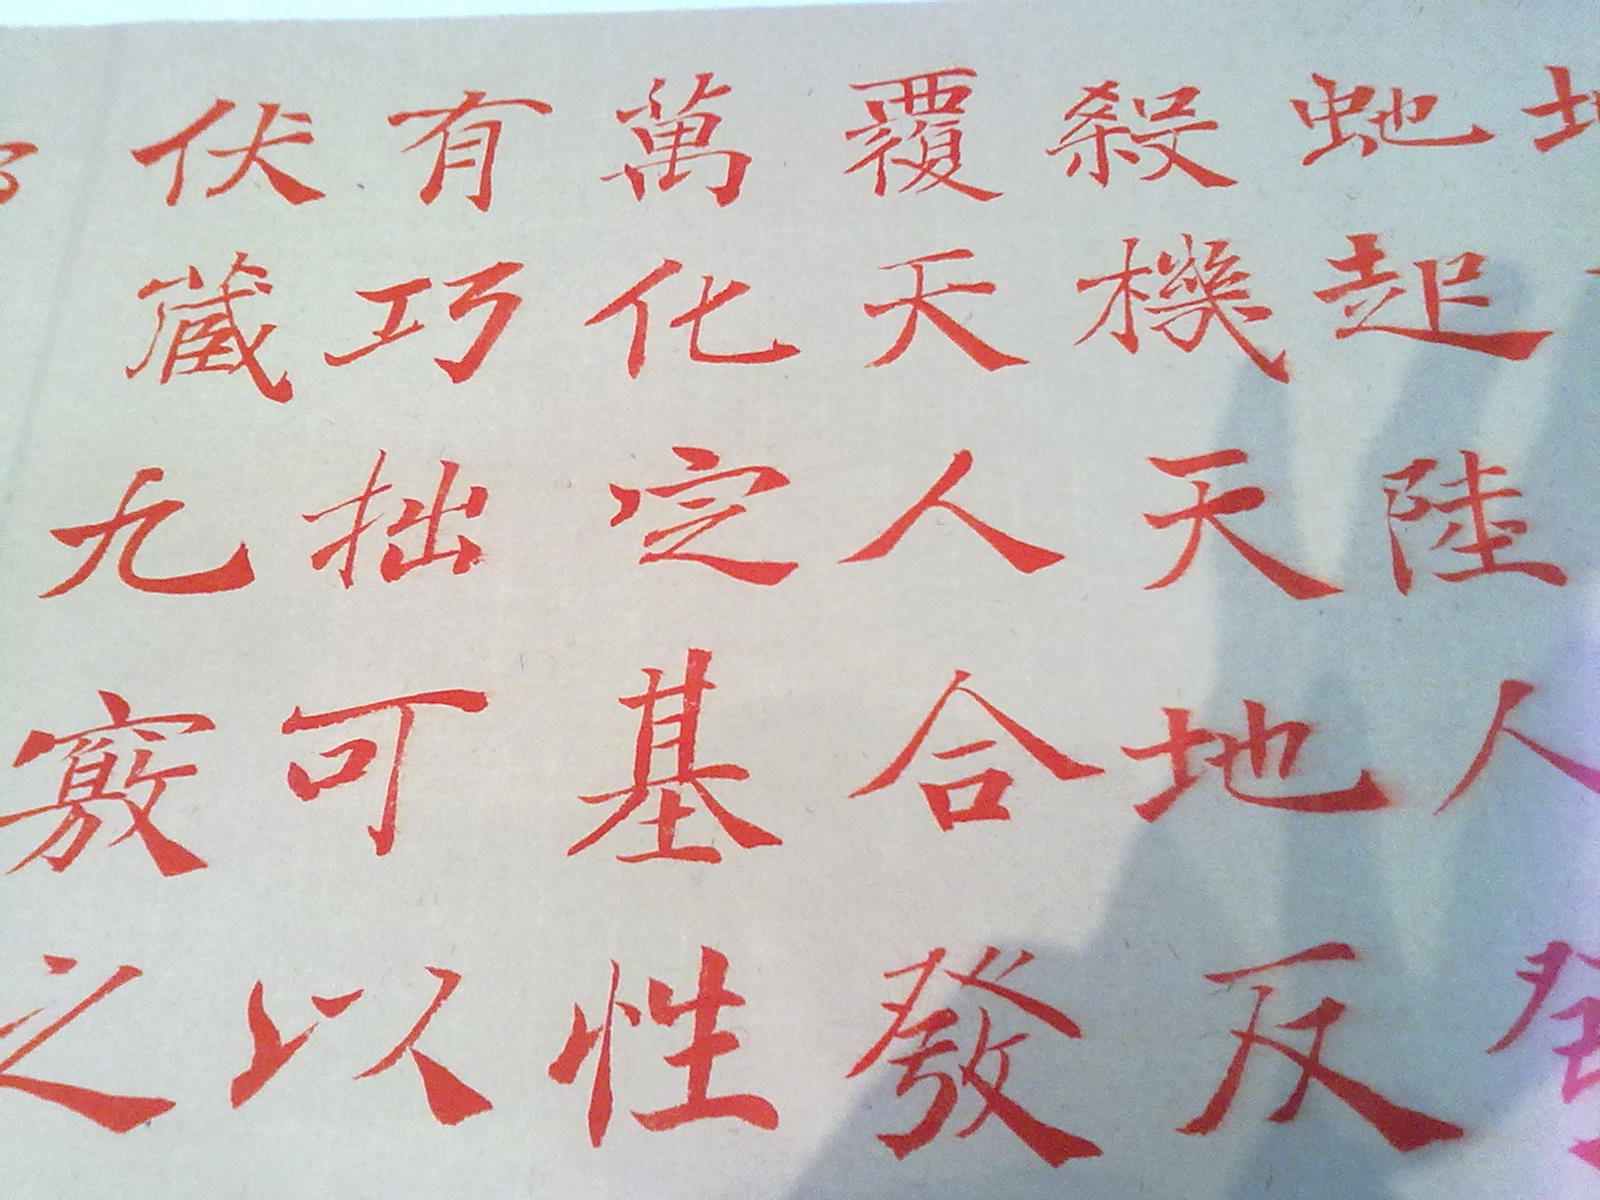 地
虵起陸人發
殺機天地反
覆天人合發
萬化定基性
有巧拙可以
伏藏九竅之